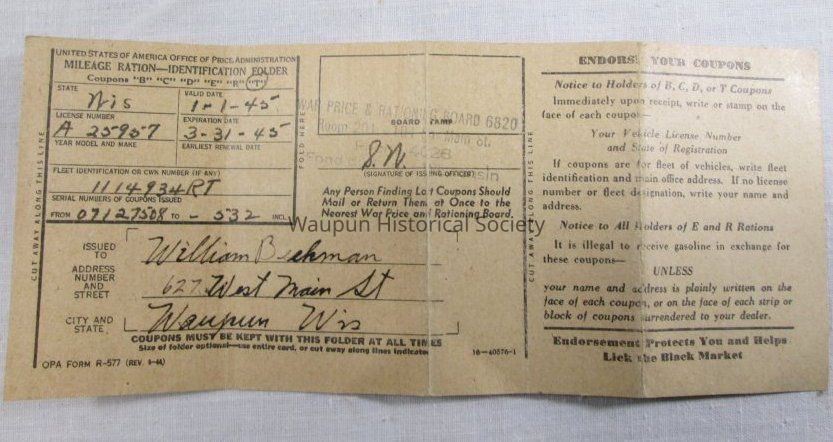 UNITED STATES OF AMERICA OFFICE OF PRICE ADMINISTRATION
MILEAGE RATION—IDENTIFICATION FOLDER
Coupons "B" "C" "D" "E" "R" "T"
STATE
Wis
VALID DATE
1-1-45
LICENSE NUMBER
A 25957
EXPIRATION DATE
3-31-45
YEAR MODEL AND MAKE
EARLIEST RENEWAL DATE
FLEET IDENTIFICATION OR CWN NUMBER (IF ANY)
1114934RT
SERIAL NUMBERS OF COUPONS ISSUED
FROM 07127508 TO - 532 INCL.
CUT AWAY ALONG THIS LINE
FOLD HERE
WAR PRICE & RATIONING BOARD 6820
BOARD STAMP
Room 201
(SIGNATURE OF ISSUING OFFICER)
Any Person Finding Lost Coupons Should
Mail or Return Them at Once to the
Nearest War Price and Rationing Board.
Waupun Historical Society
ISSUED TO
William Beekman
ADDRESS NUMBER AND STREET
627 West Main St
CITY AND STATE
Waupun Wis
COUPONS MUST BE KEPT WITH THIS FOLDER AT ALL TIMES
Size of folder optional—use entire card, or cut away along lines indicated
OPA FORM R-577 (REV. 9-44)
16—40576-1
CUT AWAY ALONG THIS LINE
ENDORSE YOUR COUPONS
Notice to Holders of B, C, D, or T Coupons
Immediately upon receipt, write or stamp on the
face of each coupon—
Your Vehicle License Number
and State of Registration
If coupons are for fleet of vehicles, write fleet
identification and main office address. If no license
number or fleet designation, write your name and
address.
Notice to All Holders of E and R Rations
It is illegal to receive gasoline in exchange for
these coupons—
UNLESS
your name and address is plainly written on the
face of each coupon, or on the face of each strip or
block of coupons surrendered to your dealer.
Endorsement Protects You and Helps
Lick the Black Market